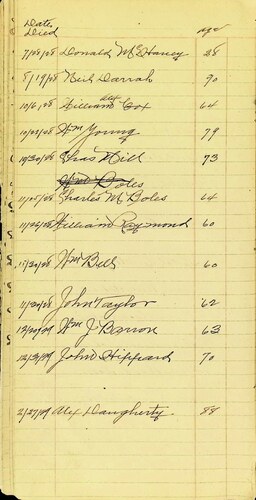 Date
Died Age
7/08/08 Donald McHaney 28
8/19/08 Neil Darrah 70
10/6/08 William Alex Cox 64
10/02/08 Wm Young 79
10/30/08 Chas Hill 73
Wm Boles
11/05/08 Charles M Boles 64
11/06/08 William Raymond 60
11/20/08 Wm Bell 60
11/20/08 John Taylor 62
12/20/09 Wm J Barron 63
12/31/09 John Hippard 70
2/27/09 Alex Daugherty 88